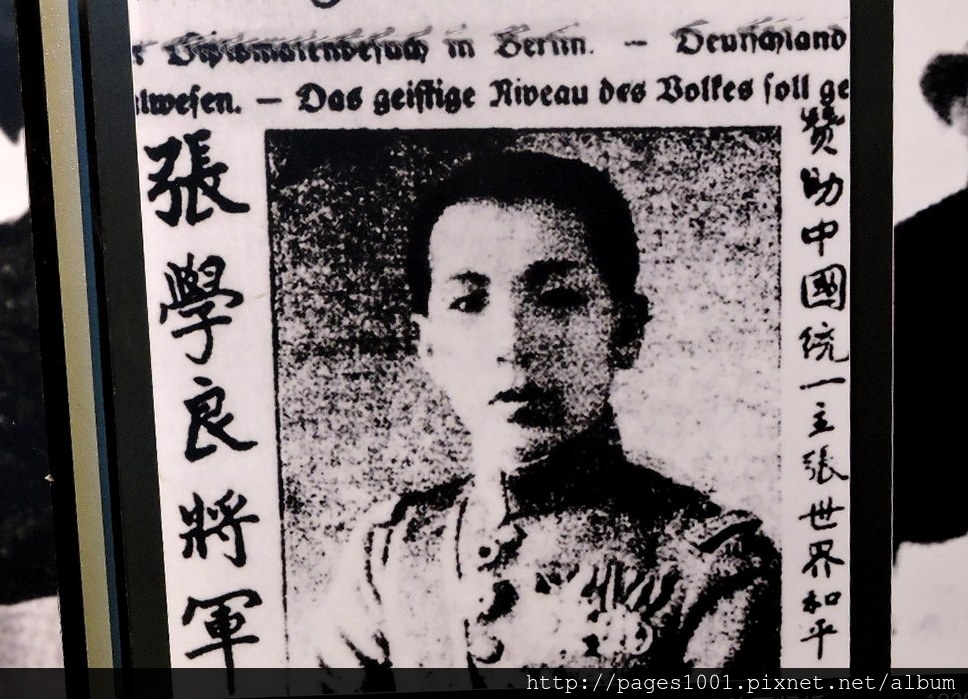 Diplomatenbesuch in Berlin. — Deutschland
lwesen. — Das geistige Niveau des Volkes soll ge
張學良將軍
贊助中國統一主張世界和平
http://pages1001.pixnet.net/album